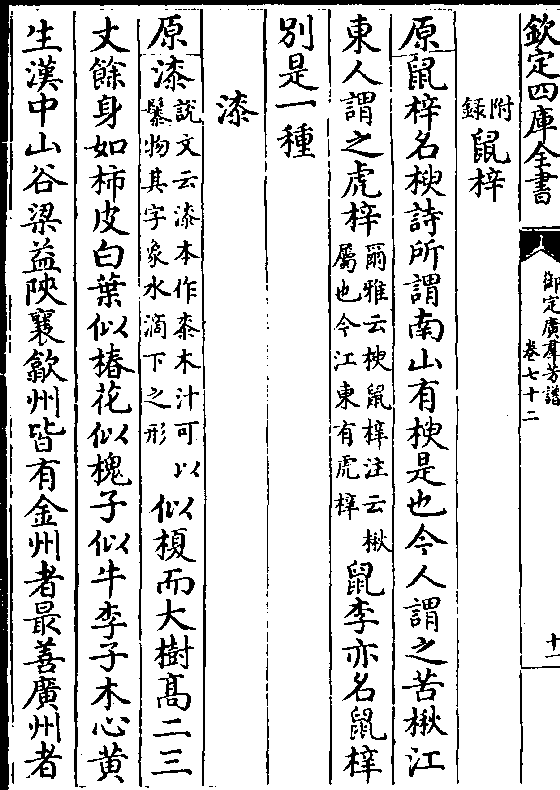 欽定四庫全書
御定廣羣芳譜
卷七十二
十一
附錄鼠梓
原鼠梓名楰詩所謂南山有楰是也今人謂之苦楸江
東人謂之虎梓爾雅云楰鼠梓注云楸屬也今江東有虎梓鼠李亦名鼠梓
別是一種
漆
原漆說文云漆本作桼木汁可以䰍物其字象水滴下之形似榎而大樹高二三
丈餘身如柿皮白葉似椿花似槐子似牛李子木心黃
生漢中山谷梁益陜襄歙州皆有金州者最善廣州者